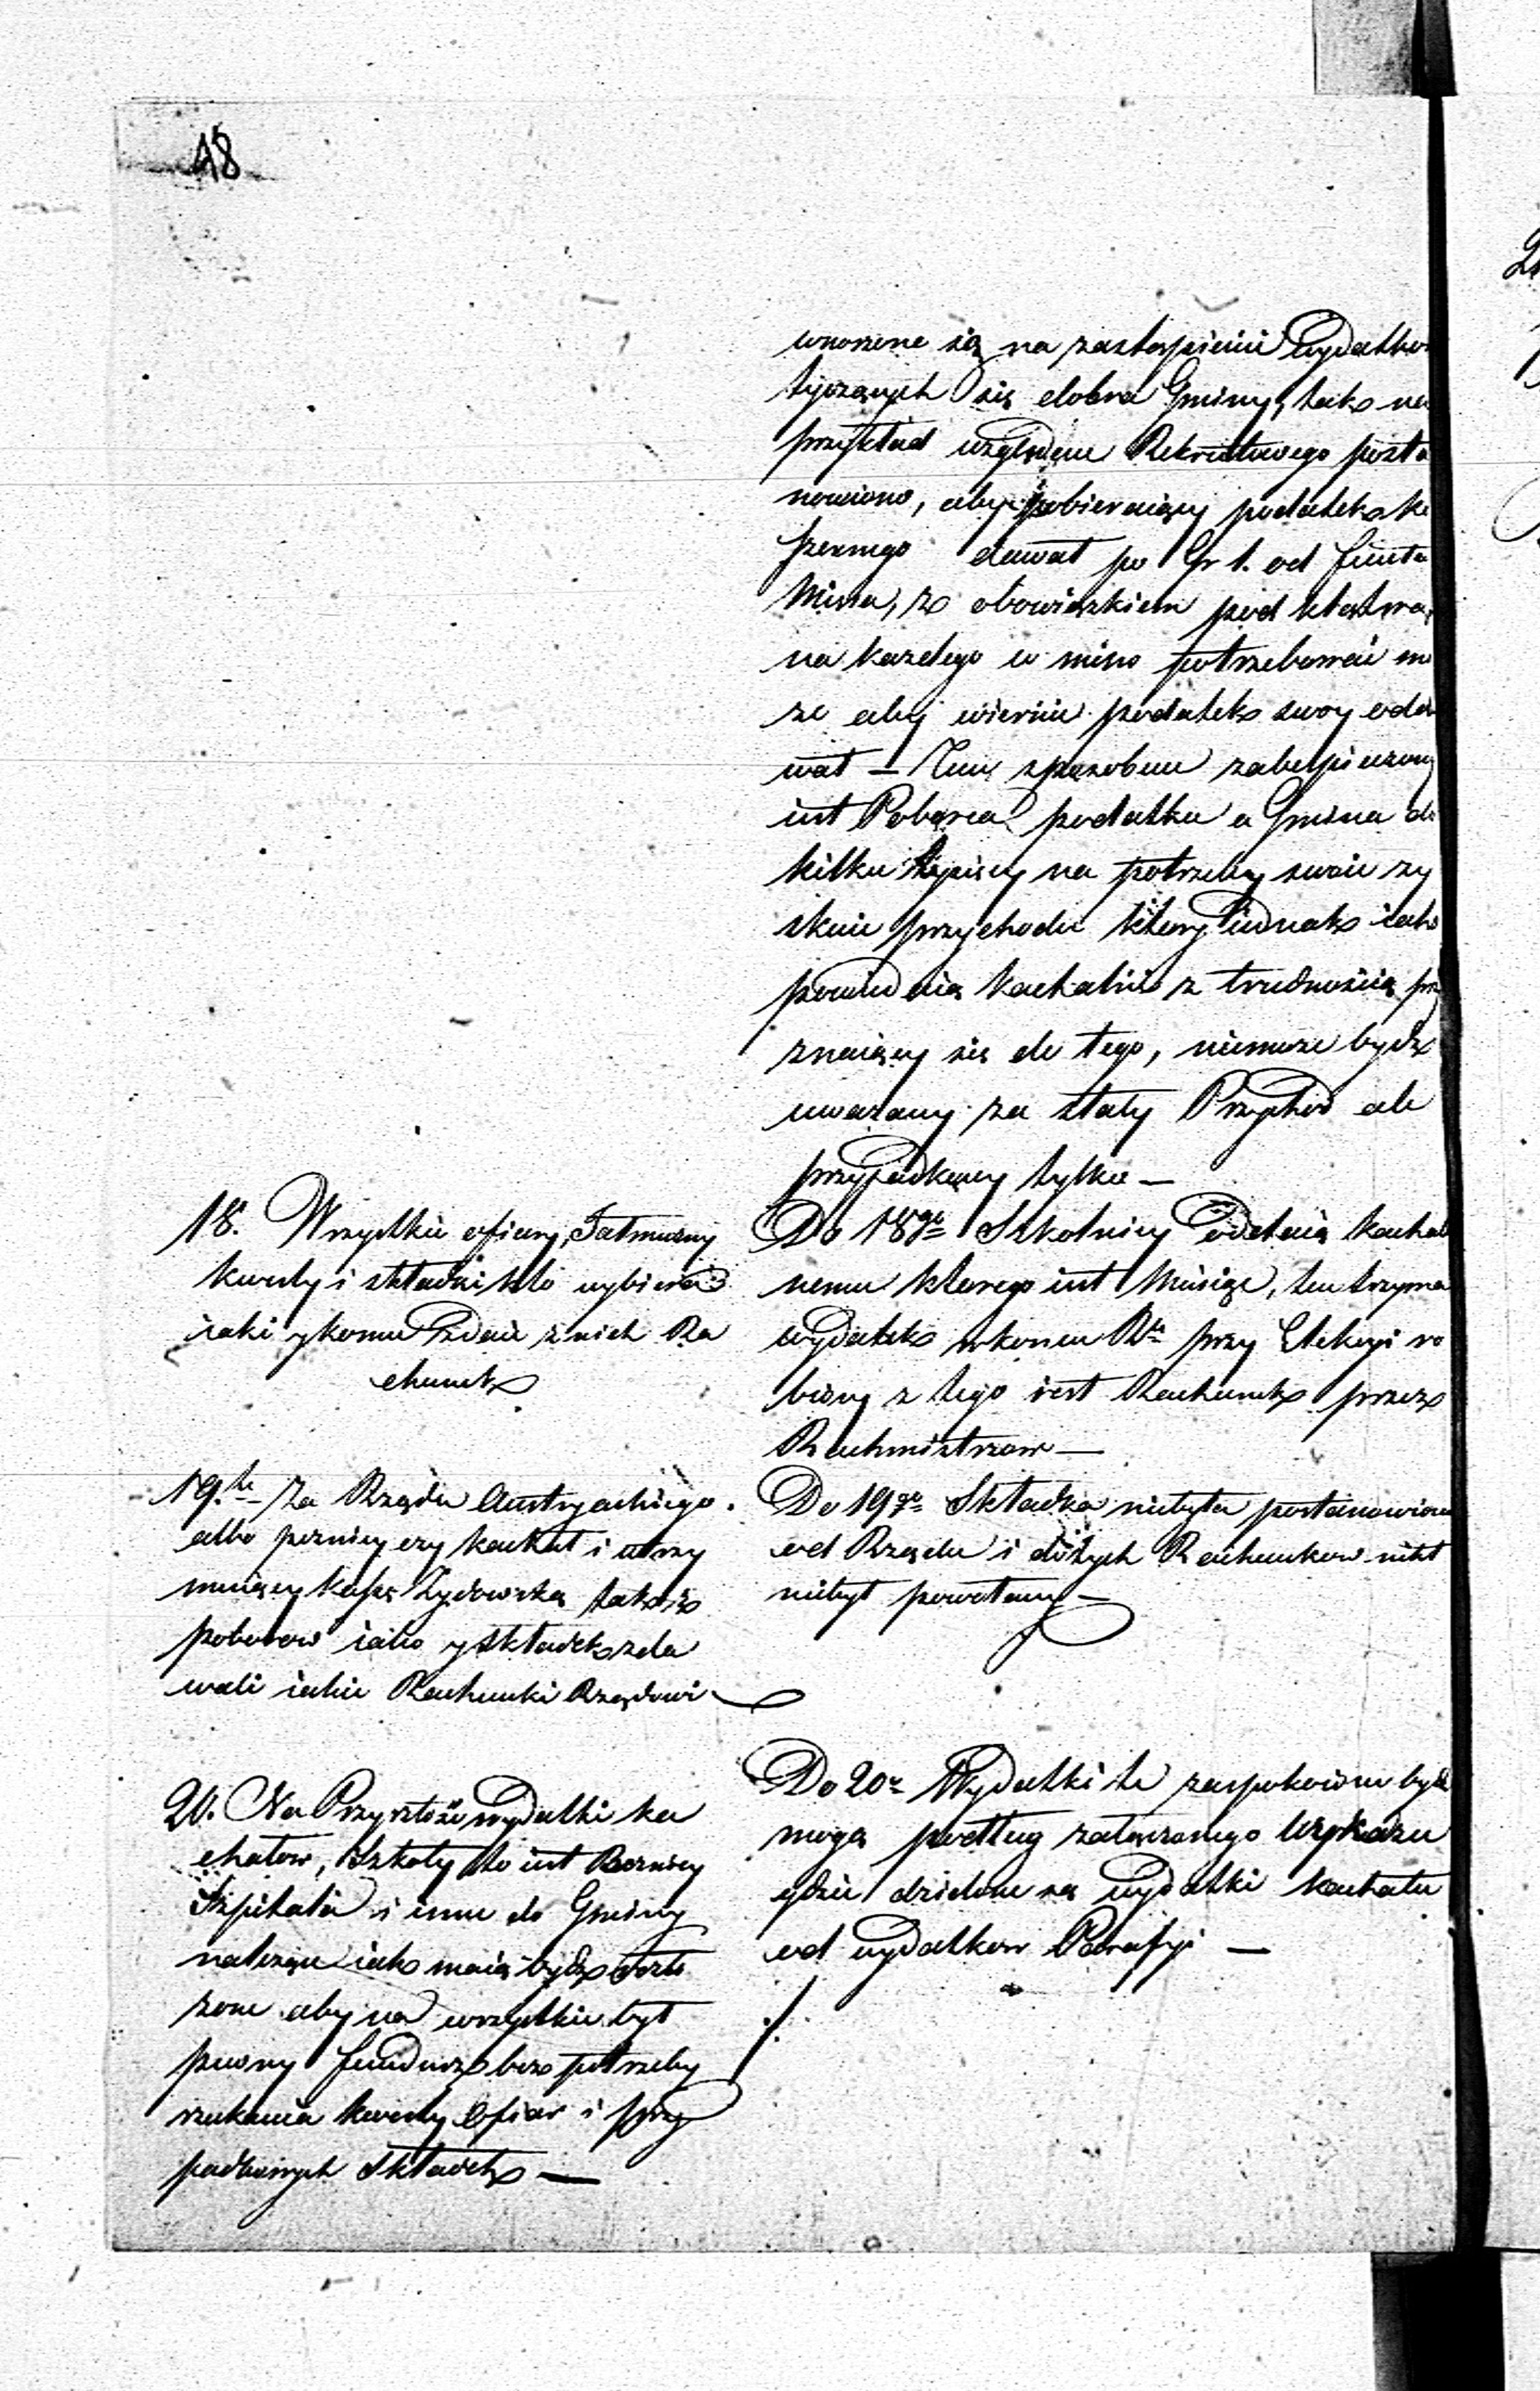 48
wnoszone są na zastąpienie wydatkow
tyczących się dobra Gminy, tak na
przykład względem Rekrutowego posta
nowiono, aby pobieraiący podatek ko
szernego dawał po Gr 1. od funta
Mięsa, z obowiązkiem pod klątwą
na każdego w mięso potrzebować mo
że aby wiernie podatek swoy odda
wał — Tem sposobem zabespieczony
iest Poborca podatku a Gmina do
kilku tysięcy na potrzeby swoie zy
skuie przychodu ktory iednak iako
powiedaią kachalni z trudnością przy
znaiący się do tego, niemoże bydź
uwazany za stały Przychod ale
przypadkowy tylko —
18. Wszystkie ofiary, Jałmużny
kwesty i składki kto wybiera
iaki y komu zdaie z nich Ra
chunek
Do 18go Szkolnicy oddaią kachal
nemu ktorego iest Miesiąc, ten trzyma
wydatek w koncu Rku przy Elekcyi ro
biony z tego iest Rachunek przez
Rachmistrzow —
19.te Za Rządu Austryackiego
albo pozniey czy kachał i utrzy
muiący kassę Zydowską tak iż
poborow iako y składek zda
wali iakie Rachunki Rządowi
Do 19go Składka niebyła postanowiona
od Rządu i do tych Rachunkow nikt
niebył powołany —
20. Na Przyszłość wydatki ka
chałow, Szkoły to iest Boznicy
Szpitala i inne do Gminy
należące iak maią bydź
zone aby na wszystkie był
pewny fundusz bez potrzeby
szukania kwesty Ofiar i przy
padkowych Składek —
Do 20o Wydatki te zaspokoione bydź
mogą podług załączonego Wykazu
gdzie dzielone są wydatki kachału
od wydatkow Parafyi —
./.